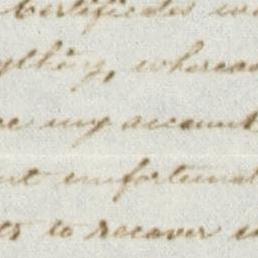 Certificates
ything, whereas
my account
unfortunat
to recover